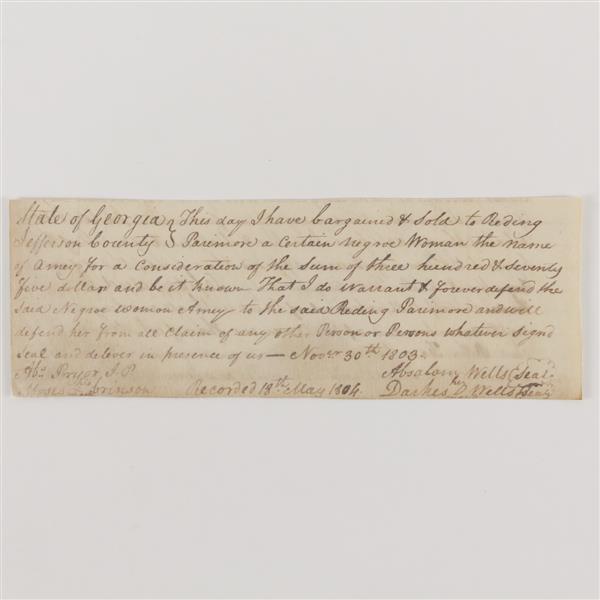 State of Georgia } This day I have bargained & Sold to Reding
Jefferson County } Parimore a Certain negroe Woman the name
of Amey for a Consideration of the Sum of three hundred & seventy
five dollars and be it known That I do warrant & forever defend the
Said Negroe woman Amey to the said Reding Parimore and will
defend her from all Claim of any other Person or Persons whatever signd
Seal and delever in presence of us — Novr 30th 1803
Abs. Pryor J. P. Absalom Wells (Seal
his her
Moses Brinson Recorded 18th May 1804. Darkes D. Wells (Seal)